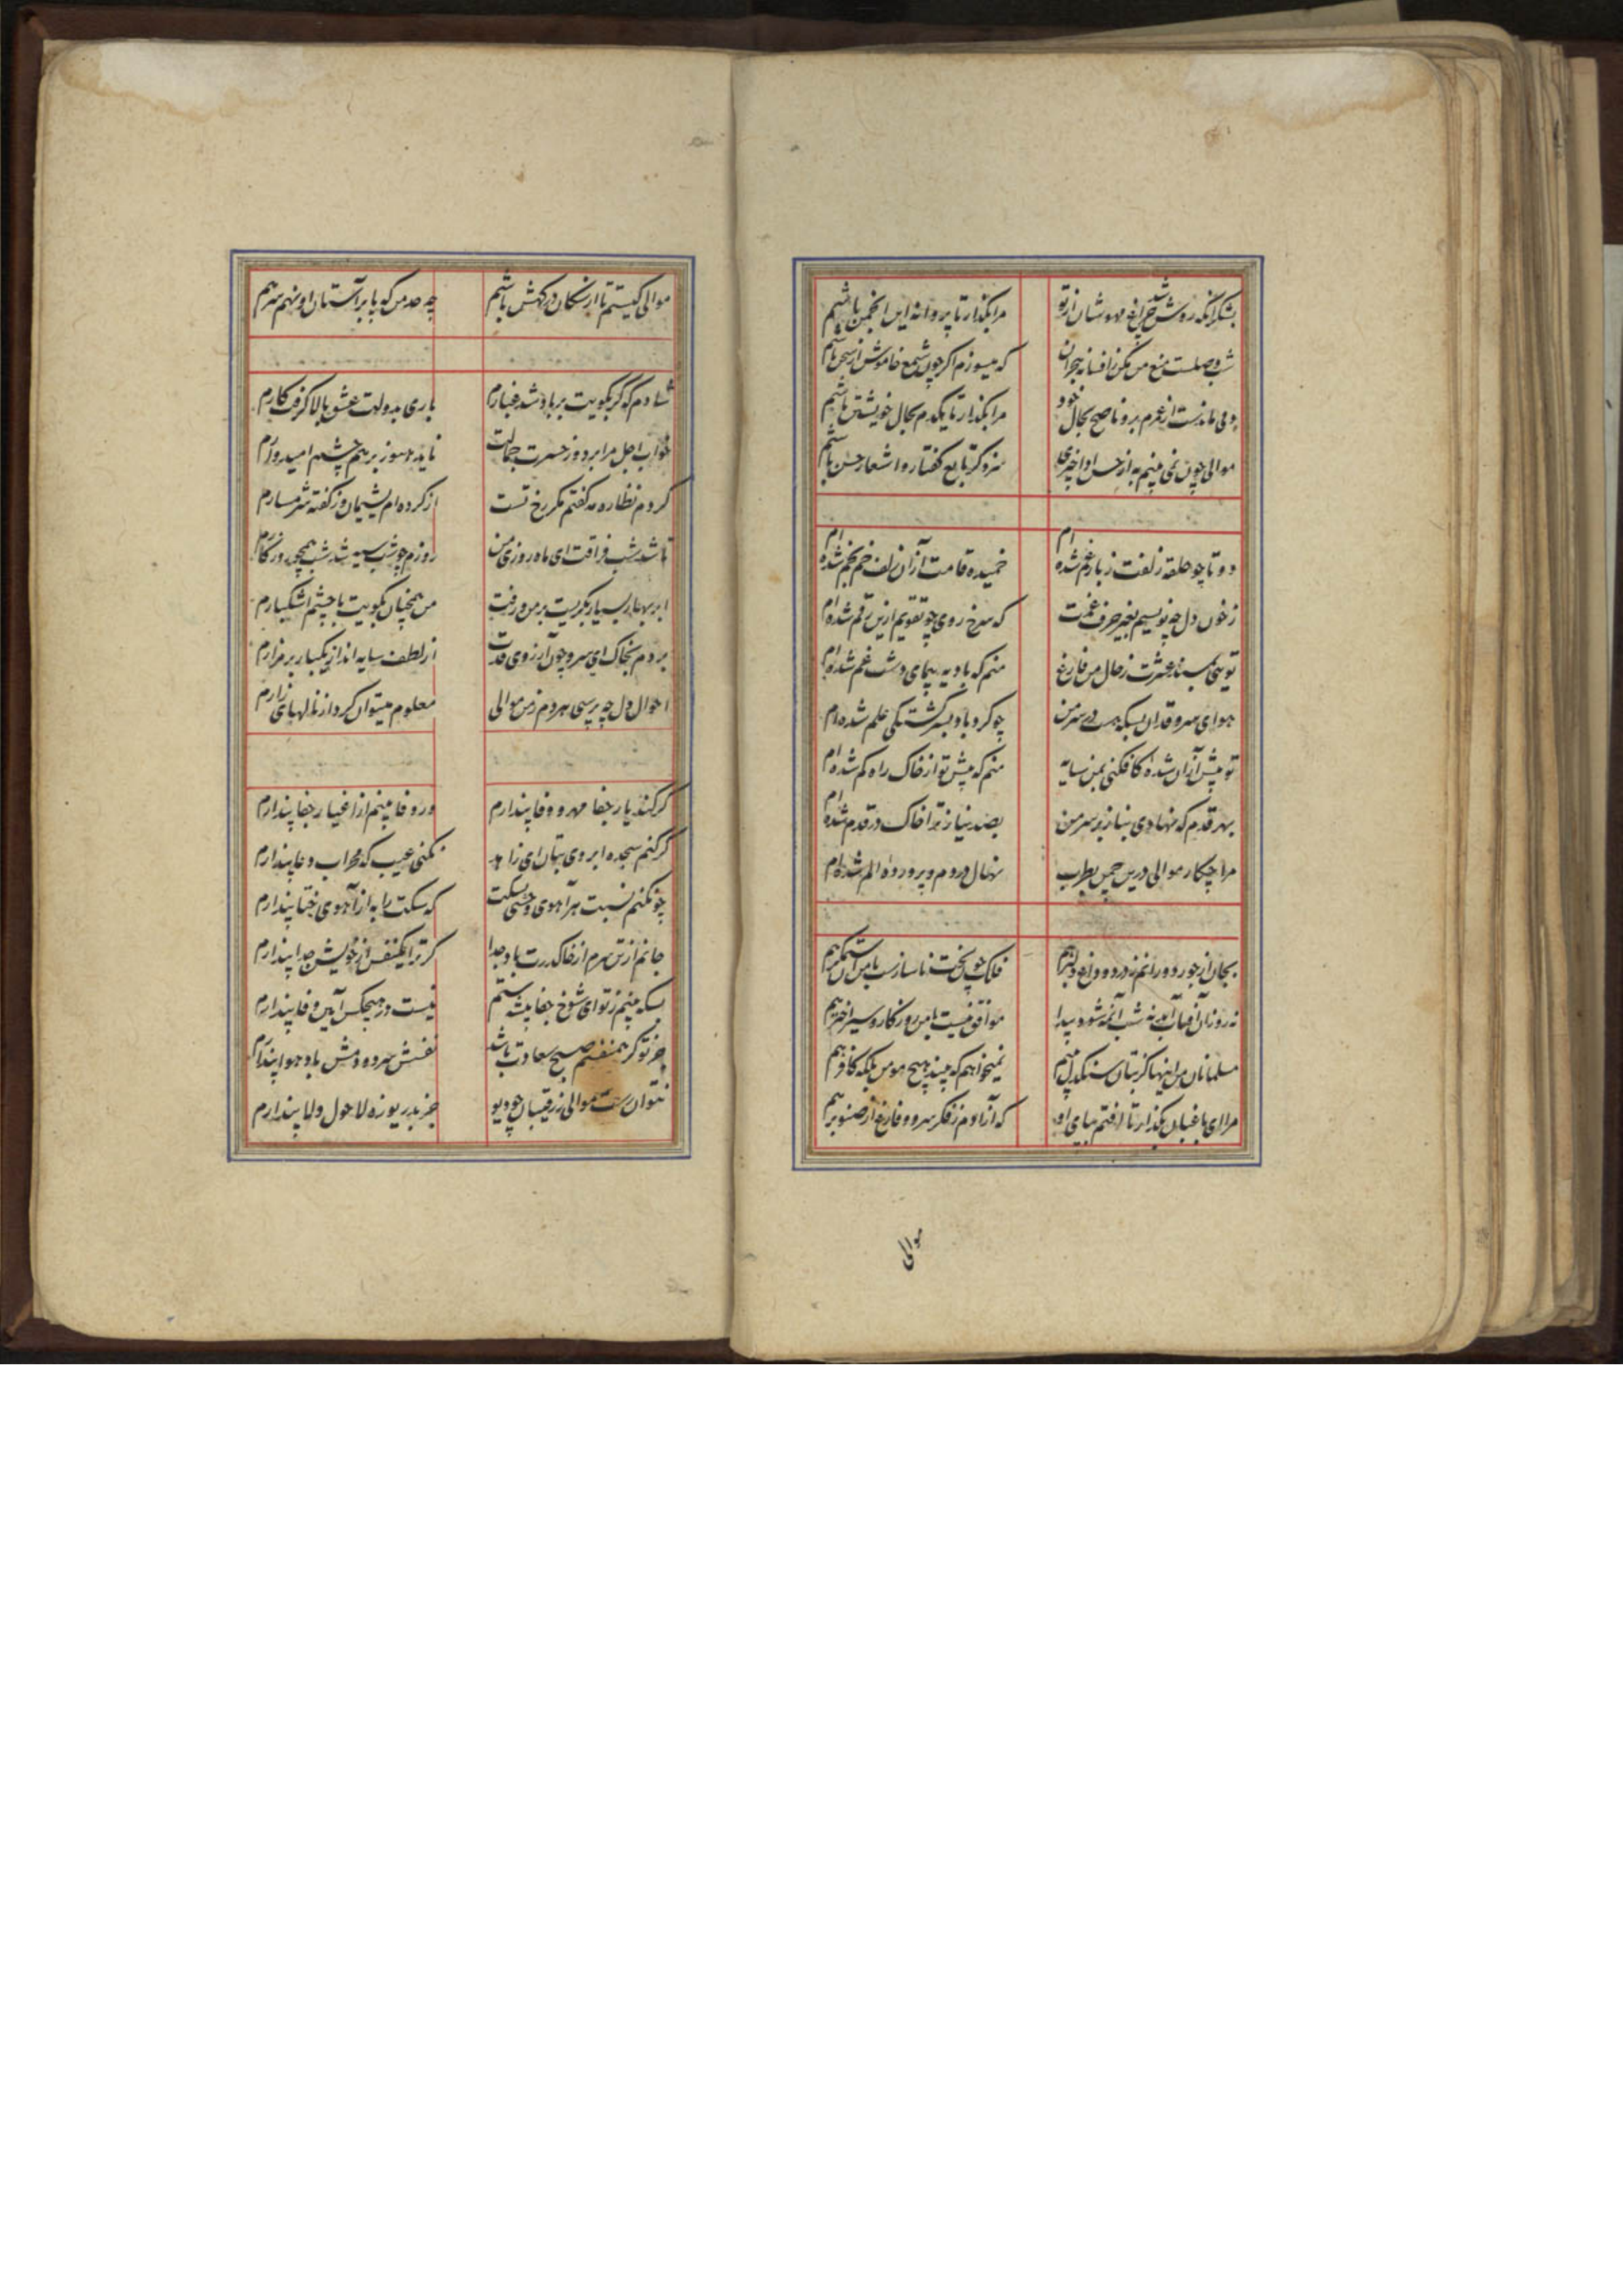 بشکر آنکه روشن شد چراغ مهوشان از تو مرا بگذار تا پروانه این انجمن باشم
شب وصلست منع من مکن ز افسانه هجران که میسوزم اگر چون شمع خاموش از سخن باشم
دمی ماندست از عمرم برو ناصح بحال خود مرا بگذار تا یکدم بحال خویشتن باشم
موالی چون نمی بینم به از حسن ادا چیزی سزد گر تابع گفتار و اشعار حسن باشم
دو تا چو حلقه زلفت ز بار غم شده ام خمیده قامت از آن زلف خم بخم شده ام
ز خون دل چه نویسم بغیر حرف غمت که سرخ روی چو تقویم ازین رقم شده ام
تویی بعشرت ز حال من فارغ منم که بادیه پیمای دشت غم شده ام
هوای سرو قدان بسکه هست در سر من چو گردباد بسرگشتگی علم شده ام
تو بیش از آن شده کافکنی بمن سایه منم که پیش تو از خاک راه کم شده ام
بهر قدم که نهادی بناز بر سر من بصد نیاز ترا خاک در قدم شده ام
مرا چکار موالی درین چمن بطرب نهال دردم و پرورده الم شده ام
بجان از جور دورانم ز درد و داغ دلبر هم فلک چون بخت ناسازست با من آن ستمگر هم
نه روز آن آفتاب آید نه شب آن مه شود پیدا موافق نیست با من روزگار و سیر اختر هم
مسلمانان من اینها کز بتان سنگدل دیدم نمیخواهم که بیند هیچ مومن بلکه کافر هم
مرا ای باغبان بگذار تا افتم بپای او که آزادم ز فکر سرو و فارغ از صنوبر هم
موالی
موالی کیستم تا از سگان درگهش باشم چه حد من که پا بر آستان او نهم سر هم
شادم که گر بکویت بر باد شد غبارم باری بدولت عشق بالا گرفت کارم
خواب اجل مرا برد وز حسرت جمالت ناید هنوز بر هم چشم امیدوارم
کردم نظاره مه گفتم مگر رخ تست از کرده ام پشیمان وز گفته شرمسارم
تا شد شب فراقت ای ماه روزی من روزم چو شب سیه شد شب همچو روزگارم
ابر بهار بسیار بگریست بر من و رفت من همچنان بکویت با چشم اشکبارم
بردم بخاک ای سرو چون آرزوی قدت از لطف سایه انداز یکبار بر مزارم
احوال دل چه پرسی هر دم ز من موالی معلوم میتوان کرد از نالهای زارم
گر کند یار جفا مهر و وفا پندارم ور وفا بینم از اغیار جفا پندارم
گر کنم سجده ابروی بتان ای زاهد نکنی عیب که محراب دعا پندارم
چو نکنم نسبت هر آهوی وحشی بسگت که سگت را به از آهوی ختا پندارم
جانم از تن سرم از خاک درت باد جدا گر ترا یکنفس از خویش جدا پندارم
بسکه بینم ز تو ای شوخ جفا پیشه ستم نیست در هیچکس آیین وفا پندارم
جز تو گر همنفسم صبح سعادت باشد نفسش سرد و دمش باد هوا پندارم
نتوان رست موالی ز رقیبان چو دیو جز بدریوزه لاحول ولا پندارم